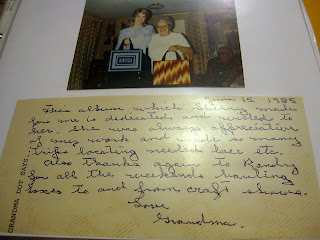 June 15 1985
This album which has made
for me is dedicated and willed to
her. She was always appreciative
of my work and made so many
trips locating needed lace etc.
Also thanks again to Randy
for all the weekends hauling
boxes to and from craft shows.
Love
Grandma.
GRANDMA DOT SAYS